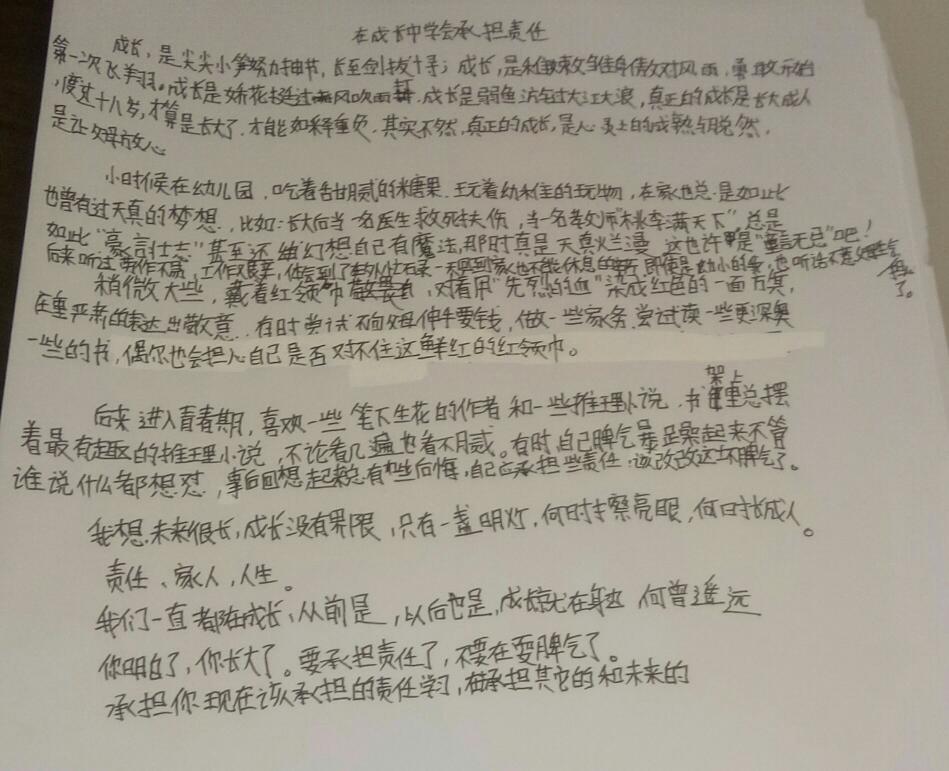 在成长中学会承担责任
成长，是尖尖小笋努力抽节，长至剑拔；成长，是对风雨，勇敢开始
第一次飞羽。成长是娇花挺过风吹雨打，成长是弱鱼游过大江大浪，真正的成长是长大成人
，度过十八岁，才算是长大了，才能如释重负，其实不然，真正的成长，是心灵上的成熟与脱然，
是让父母放心
小时候在幼儿园，吃着甜腻的糖果，玩着幼稚的玩物，在家也总是如此
也曾有过天真的梦想，比如：长大后当一名医生救死扶伤，当一名老师"桃李满天下"总是
如此"豪言壮志"甚至还幻想自己有魔法，那时真是天真烂漫，这也许是"童言无忌"吧！
后来听过，工作艰辛，也不能休息的，即使是幼小的我，也听话不惹父母生气了。
稍微大些，戴着红领巾，对着用"先烈的血"染成红色的一面方巾，
庄重严肃的表达出敬意，有时尝试不向父母伸手要钱，做一些家务，尝试读一些更深奥
一些的书，偶尔也会担心自己是否对不住这鲜红的红领巾。
后来进入青春期，喜欢一些笔下生花的作者和一些推理小说，书架上总摆
着最有趣的推理小说，不论看几遍也看不腻。有时自己脾气暴躁起来不管
谁说什么都想怼，事后回想起来总有些后悔，自己应承担些责任，该改改这坏脾气了。
我想，未来很长，成长没有界限，只有一盏明灯，何时擦亮眼，何时长成人。
责任、家人，人生。
我们一直都在成长，从前是，以后也是，成长就在身边，何曾遥远
你明白了，你长大了。要承担责任了，不要在耍脾气了。
承担你现在该承担的责任学习，在承担其它的和未来的